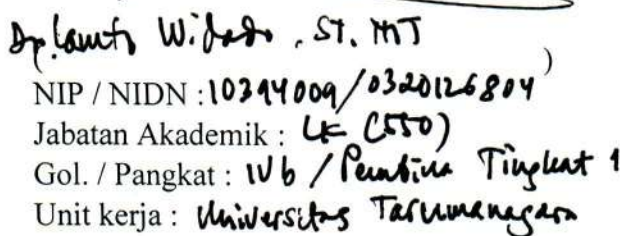 Widodo, ST. MT
)
NIP / NIDN : 10394009/0320126804
Jabatan Akademik : LK (550)
Gol. / Pangkat : IVb / Pembina Tingkat 1
Unit kerja : Universitas Tarumanagara